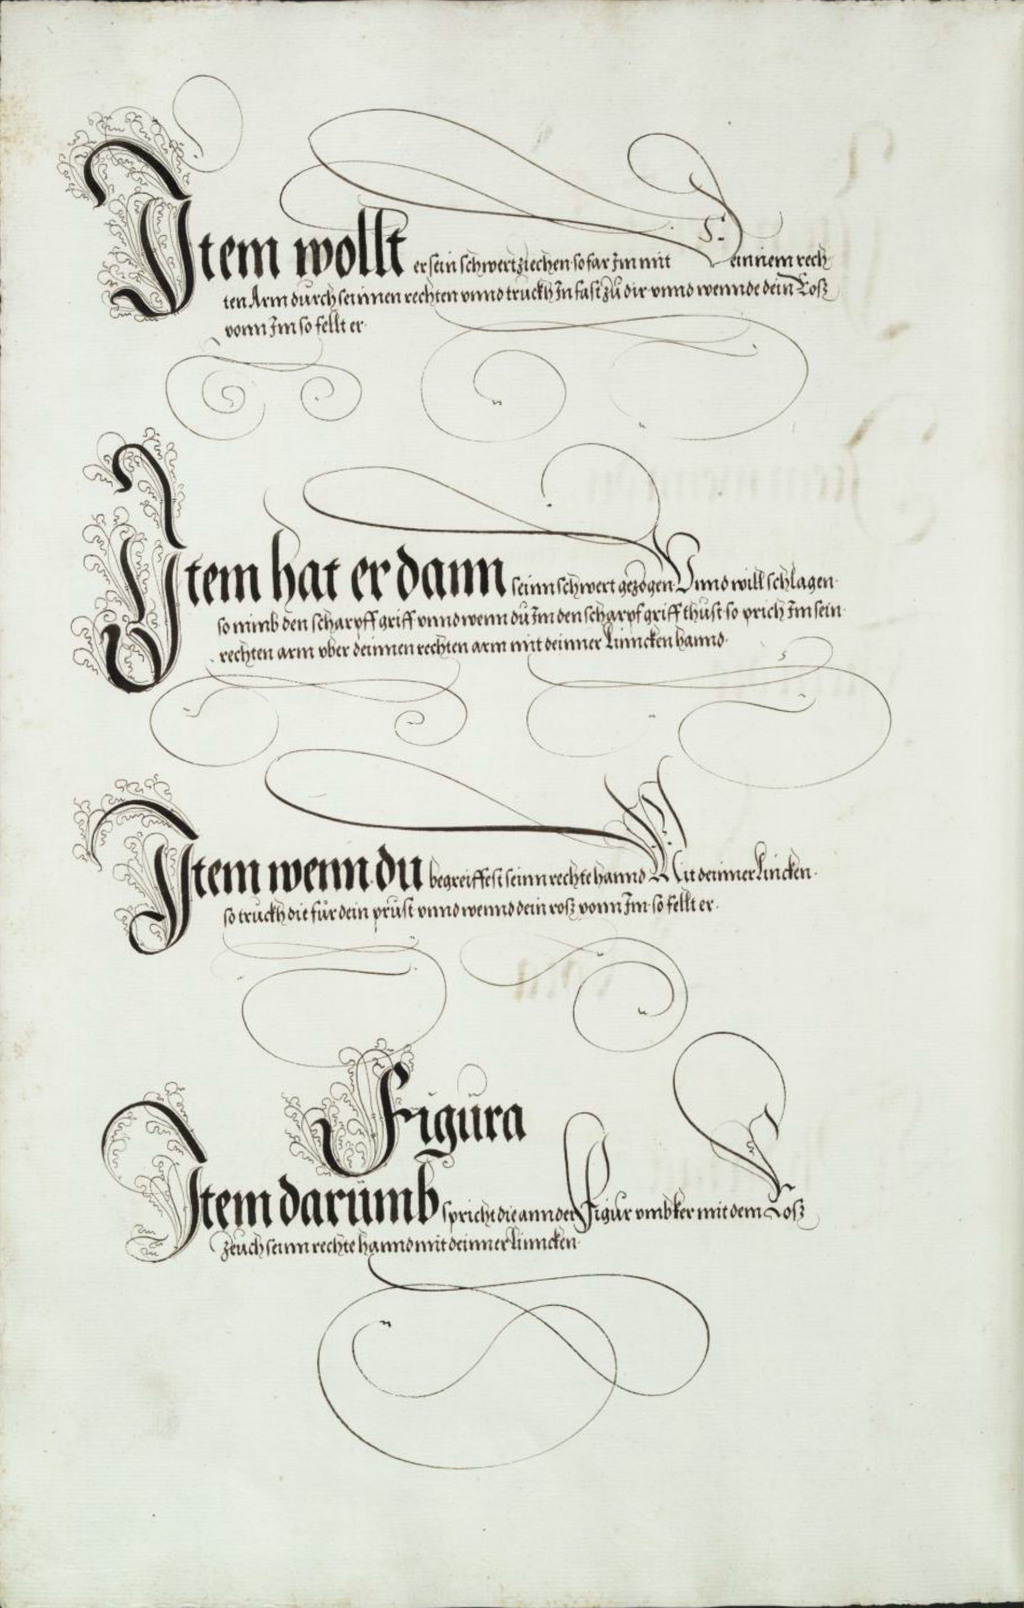 Item wollt er sein schwert ziechen so far Im mit deinnem rech
ten Arm durch seinnen rechten vnnd truckh In fast zu dir vnnd wennde dein Roß
vonn Im so fellt er.
Item hat er dann seinn schwert gezogen Vnnd will schlagen
so nimb den scharpff griff vnnd wenn du Im den scharpf griff thust so prich Im sein
rechten arm vber deinnen rechten arm mit deinner linncken hannd.
Item wenn du begreiffest seinn rechte hannd Mit deinner lincken.
so truckh die für dein prust vnnd wennd dein roß vonn Im so fellt er.
Figura
Item darumb spricht die annder Figur vmbker mit dem Roß
zeuch seinn rechte hannd mit deinner linncken.